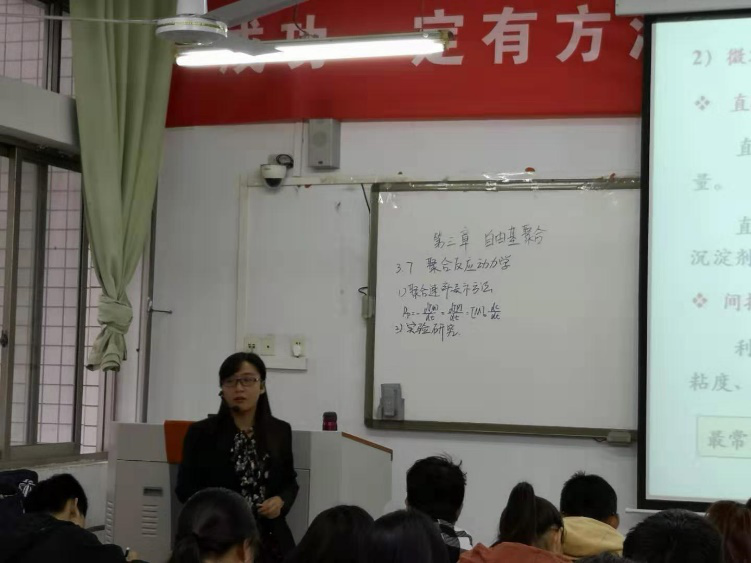 成功一定有方法
第三章 自由基聚合
3.7 聚合反应动力学
1) 聚合速率表示方法
Rp = - d[M]/dt = d[P]/dt = [M]₀ dc/dt
2) 实验研究
2) 微
❖ 直
直
量。
直
沉淀剂
❖ 间接
利
粘度、
最常